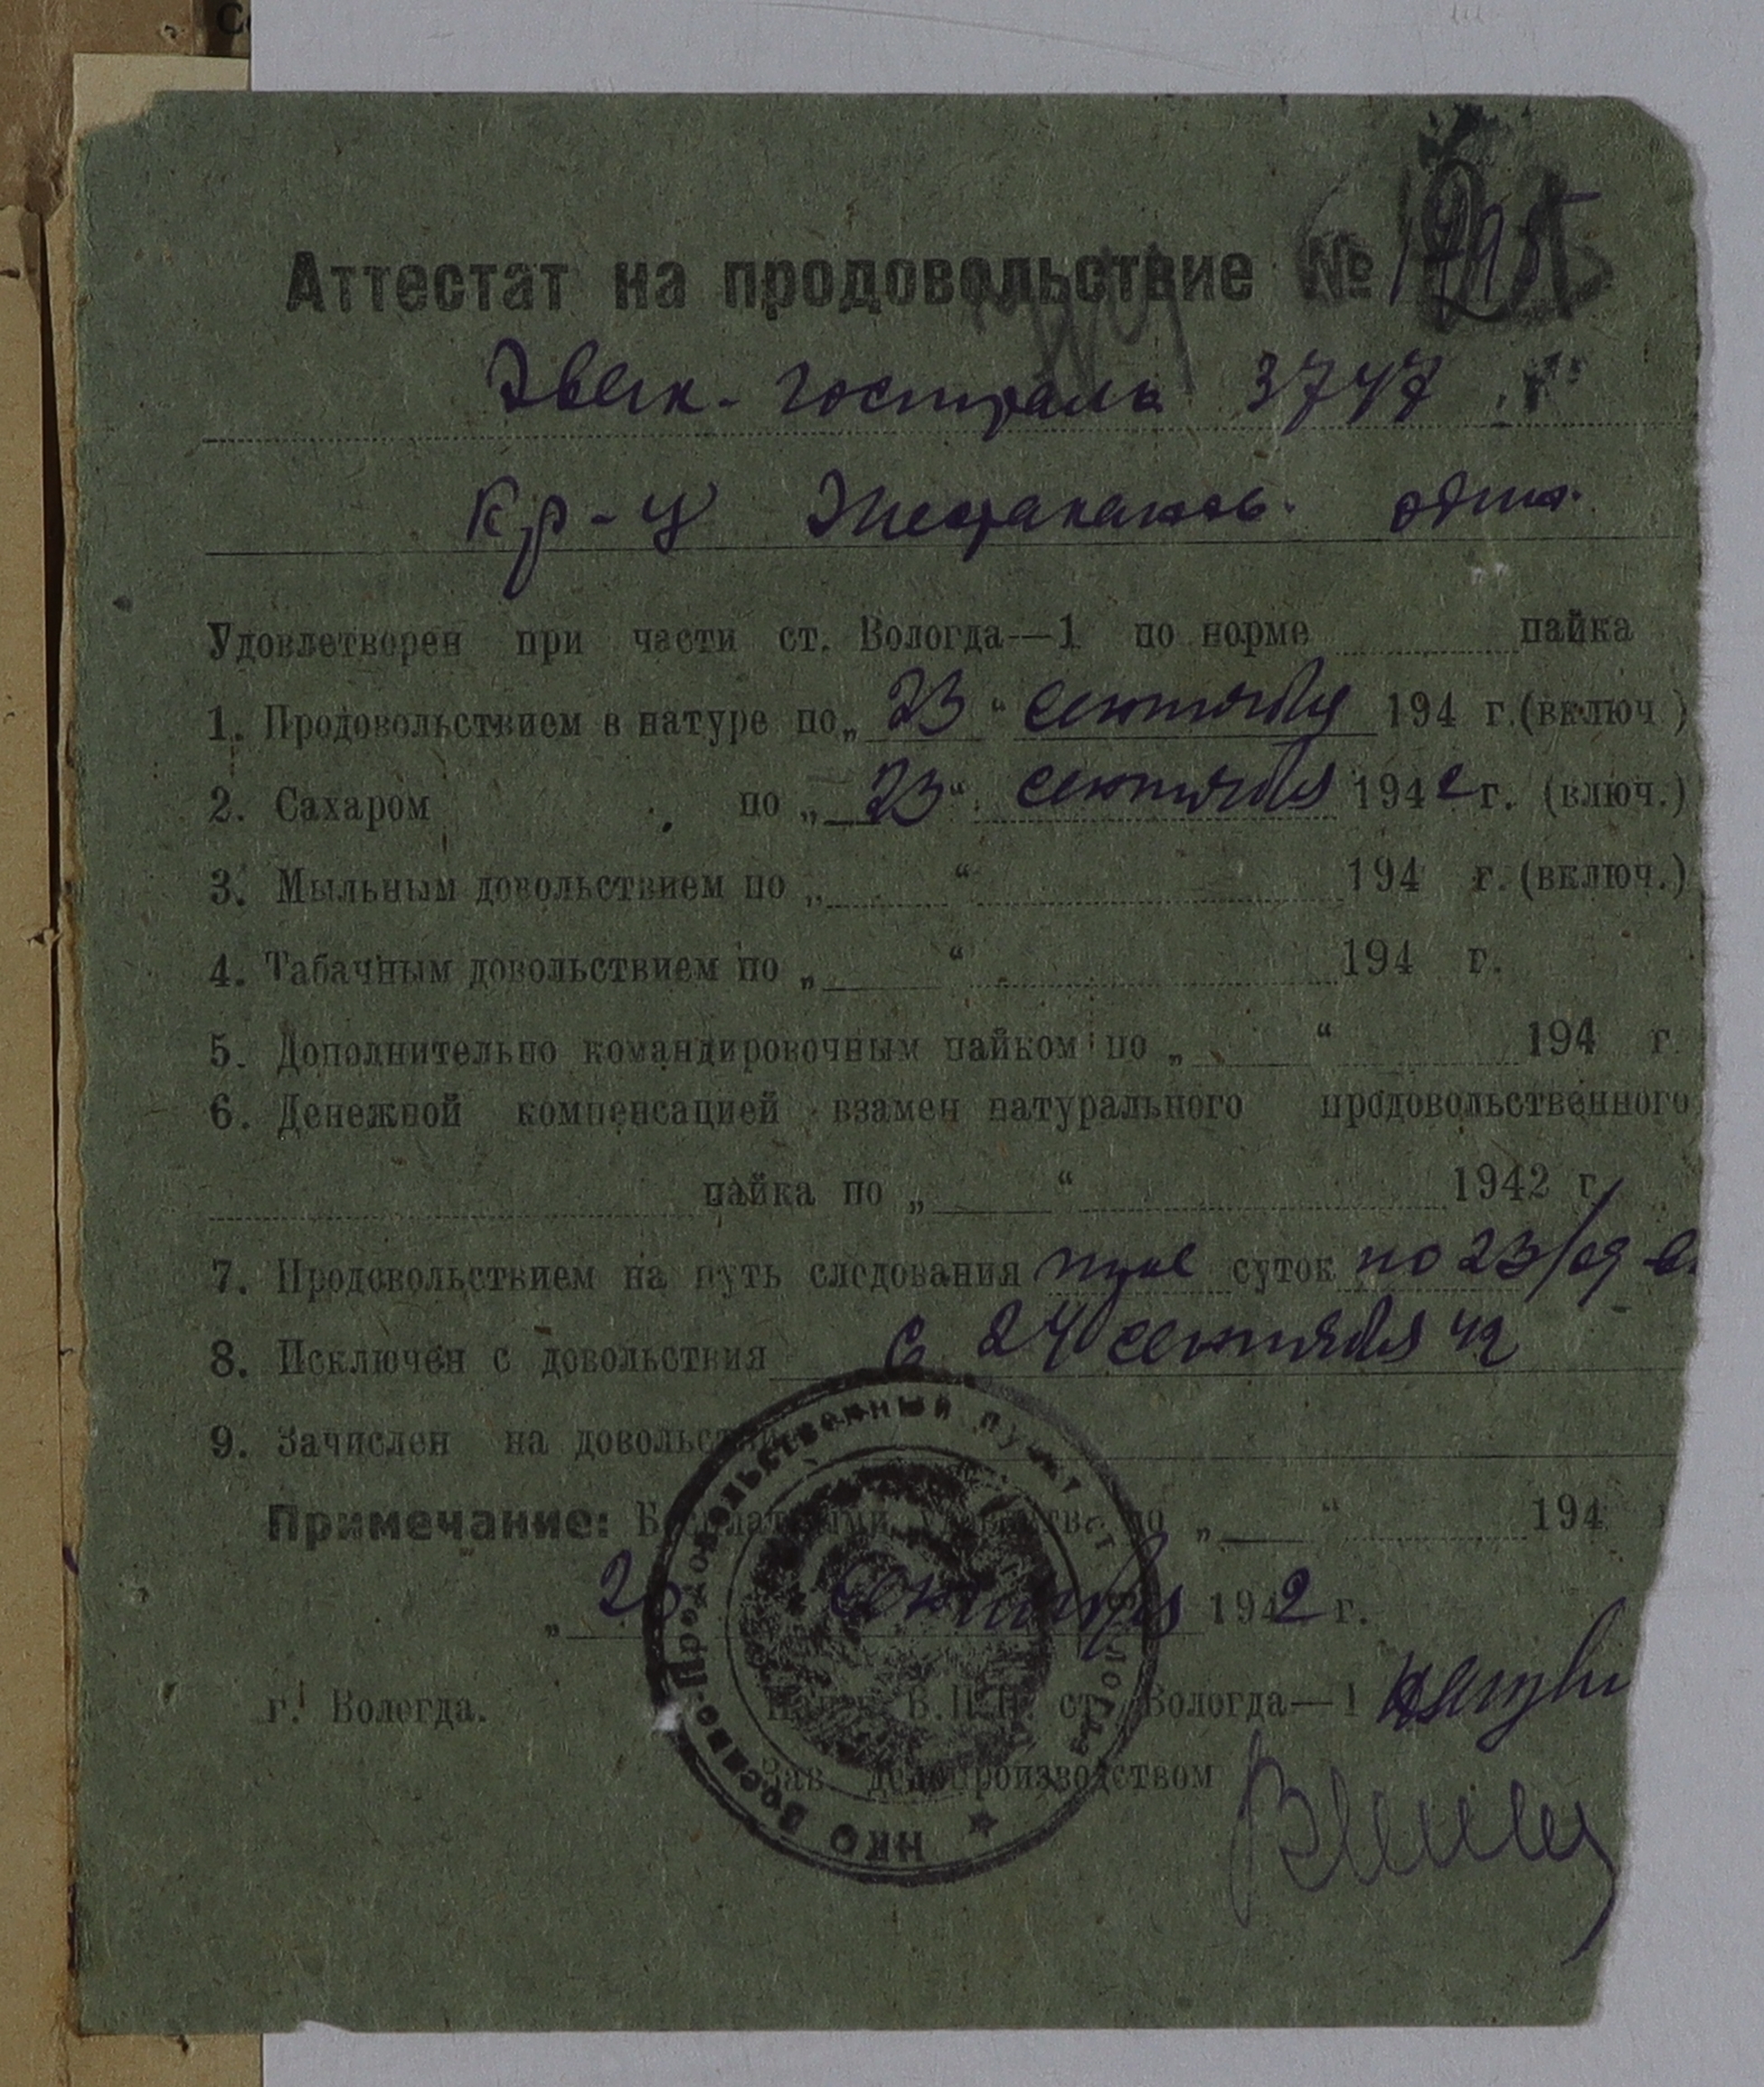 Аттестат на продовольствие №
Эвак. госпиталь 3747
Кр-ц один.
Удовлетворен при части ст. Вологда—1 по норме пайка
1. Продовольствием в натуре по „23“ сентября 194 г. (включ.)
2. Сахаром по „23“ сентября 1942 г. (ключ.)
3. Мыльным довольствием по „ “ 194 г. (включ.)
4. Табачным довольствием по „ “ 194 г.
5. Дополнительно командировочным пайком по „ “ 194 г.
6. Денежной компенсацией взамен натурального продовольственного
пайка по „ “ 1942 г.
7. Продовольствием на путь следования суток по 23/09 в.
8. Исключен с довольствия с 24 сентября 42
9. Зачислен на довольствие
Примечание: по „ “ 194
„23 сентября 1942 г.
г. Вологда. В.П.П. ст. Вологда—1
Зав. делопроизводством
НКО Военно-Продовольственный пункт г. Вологда